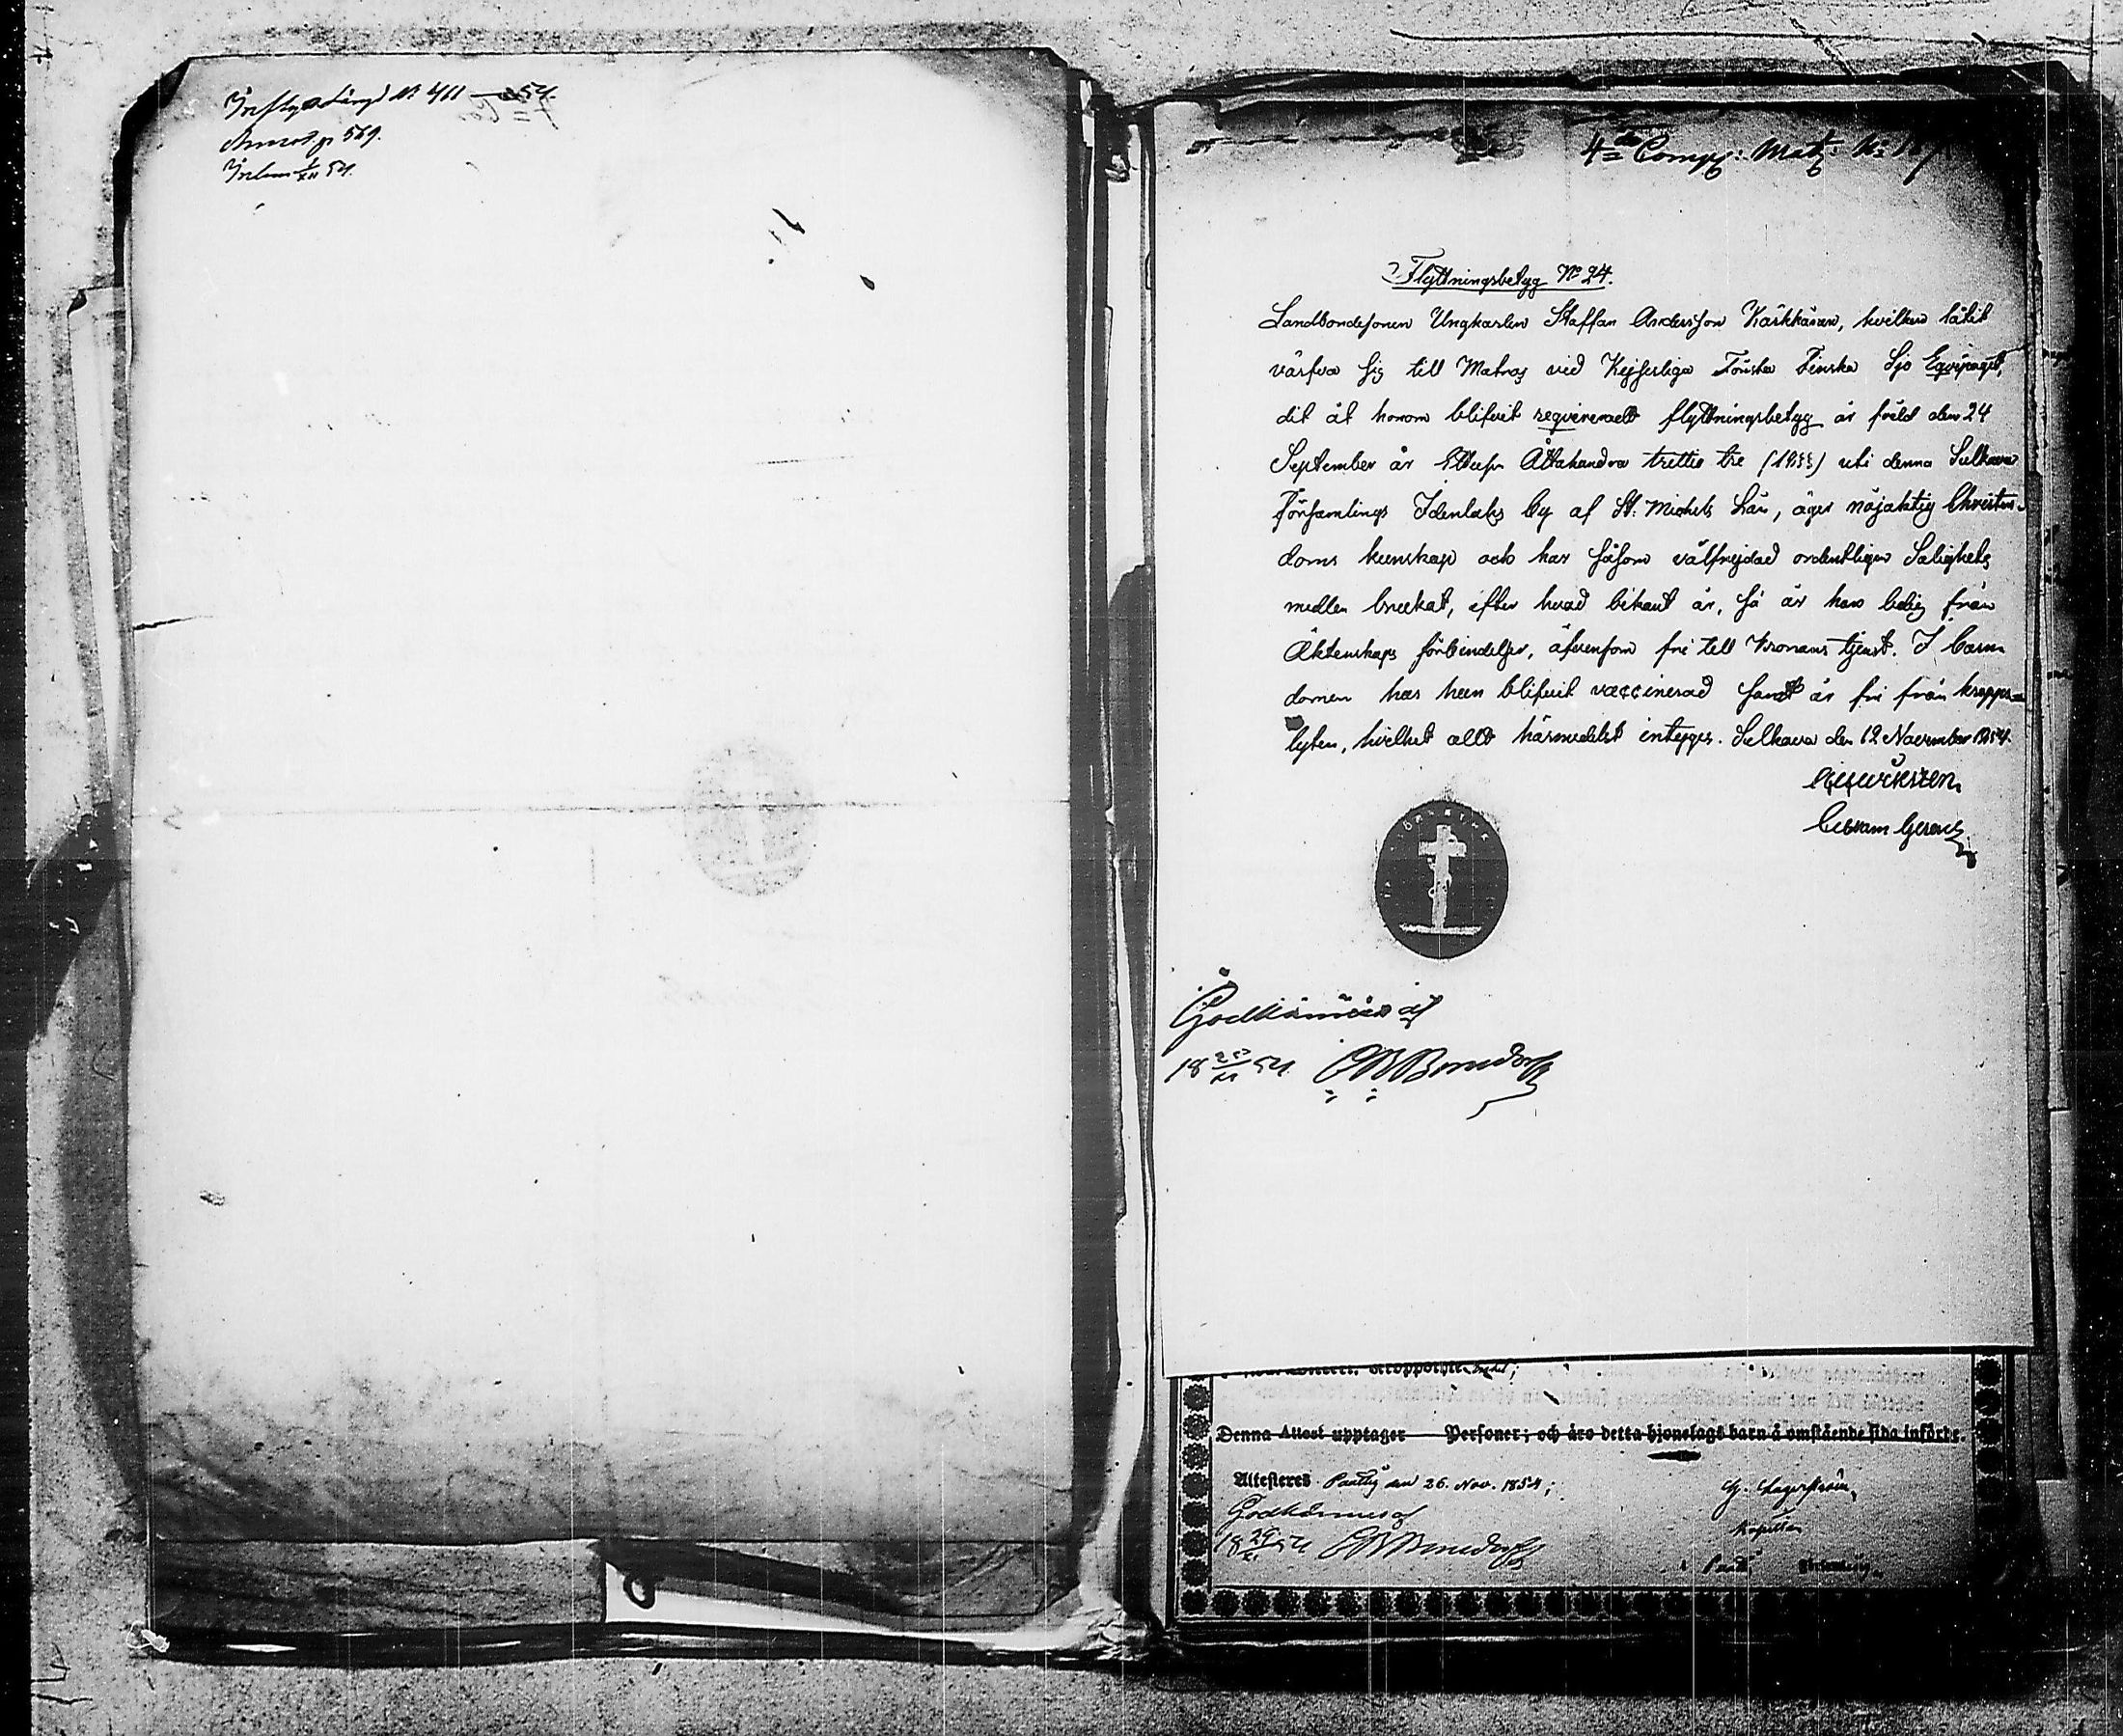 Inflyttn Längd No 411 54.
Annot. p 569.
Inlem 1/XII 54.
4de Comp: Matr: No 187
Flyttningsbetyg No 24.
Landbondesonen Ungkarlen Staffan Andersson Kärkkänen, hvilken låtit
värfva sig till Matros vid Kejserliga Första Finska Sjö Eqvipaget,
dit åt honom blifvit reqvireradt flyttningsbetyg är född den 24
September år Ettusen Åttahundra trettio tre (1833) uti denna Sulkava
Församlings Idenlaks by af St: Michels Län, äger nöjaktig Christen-
doms kunskap och har såsom välfrejdad ordentligen Salighets
medlen brukat, efter hvad bekant är, så är han ledig från
Äktenskaps förbindelser, äfvensom fri till Kronans tjenst. I barn-
domen har han blifvit vaccinerad samt är fri från kropps-
lyten, hvilket allt härmedelst intygas. Sulkava den 12 November 1854.
Godkännes af
18 25/11 54. Bonsdorff
Denna Attest upptager Personer; och äro detta hjonelags barn å omstående sida införde.
Attesteres den 26. Nov. 1854;
G. Lagerström,
Kapellan
Godkännes af
18 29/XI 54 Bonsdorff
i församling.